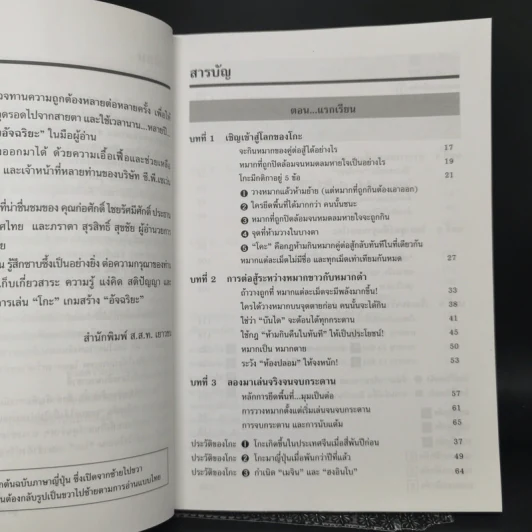 วจทานความถูกต้องหลายต่อหลายครั้ง เพื่อให้
ดรอดไปจากสายตา และใช้เวลานาน...หลายปี...
อัจฉริยะ” ในมือผู้อ่าน
ออกมาได้ ด้วยความเอื้อเฟื้อและช่วยเหลือ
และเจ้าหน้าที่หลายท่านของบริษัท ซี.พี.เซเว่น
ที่น่าชื่นชมของ คุณก่อศักดิ์ ไชยรัศมีศักดิ์ ประธาน
ศไทย และภราดา สุรสิทธิ์ สุขชัย ผู้อำนวยการ
ย
รู้สึกซาบซึ้งเป็นอย่างยิ่ง ต่อความกรุณาของท่าน
ก็บเกี่ยวสาระ ความรู้ แง่คิด สติปัญญา และ
การเล่น “โกะ” เกมสร้าง “อัจฉริยะ”
สำนักพิมพ์ ส.ส.ท. เยาวชน
กต้นฉบับภาษาญี่ปุ่น ซึ่งเปิดจากซ้ายไปขวา
นต้องกลับรูปเป็นขวาไปซ้ายตามการอ่านแบบไทย
สารบัญ
ตอน...แรกเรียน
บทที่ 1 เชิญเข้าสู่โลกของโกะ
จะกินหมากของคู่ต่อสู้ได้อย่างไร 17
หมากที่ถูกปิดล้อมจนหมดลมหายใจเป็นอย่างไร 19
โกะมีกติกาอยู่ 5 ข้อ 21
❶ วางหมากแล้วห้ามย้าย (แต่หมากที่ถูกกินต้องเอาออก)
❷ ใครยึดพื้นที่ได้มากกว่า คนนั้นชนะ
❸ หมากที่ถูกปิดล้อมจนหมดลมหายใจจะถูกกิน
❹ จุดที่ห้ามวางในบางตา
❺ “โคะ” คือกฎห้ามกินหมากคู่ต่อสู้กลับทันทีในที่เดียวกัน
หมากแต่ละเม็ดไม่มีชื่อ และทุกเม็ดเท่าเทียมกันหมด 27
บทที่ 2 การต่อสู้ระหว่างหมากขาวกับหมากดำ
ถ้าวางถูกที่ หมากแต่ละเม็ดจะมีพลังมากขึ้น! 33
ใครได้วางหมากบนจุดตายก่อน คนนั้นจะได้กิน 38
ใช่ว่า “บันได” จะต้อนได้ทุกกระดาน 41
ใช้กฎ “ห้ามกินคืนในทันที” ให้เป็นประโยชน์! 45
หมากเป็น หมากตาย 50
ระวัง “ห้องปลอม” ให้จงหนัก! 53
บทที่ 3 ลองมาเล่นจริงจนจบกระดาน
หลักการยึดพื้นที่...มุมเป็นต่อ 57
การวางหมากตั้งแต่เริ่มเล่นจนจบกระดาน 61
การจบกระดาน และการนับแต้ม 65
ประวัติของโกะ ❶ โกะเกิดขึ้นในประเทศจีนเมื่อสี่พันปีก่อน 37
ประวัติของโกะ ❷ โกะมาญี่ปุ่นเมื่อพันกว่าปีที่แล้ว 49
ประวัติของโกะ ❸ กำเนิด “เมจิน” และ “ฮงอินโบ” 64